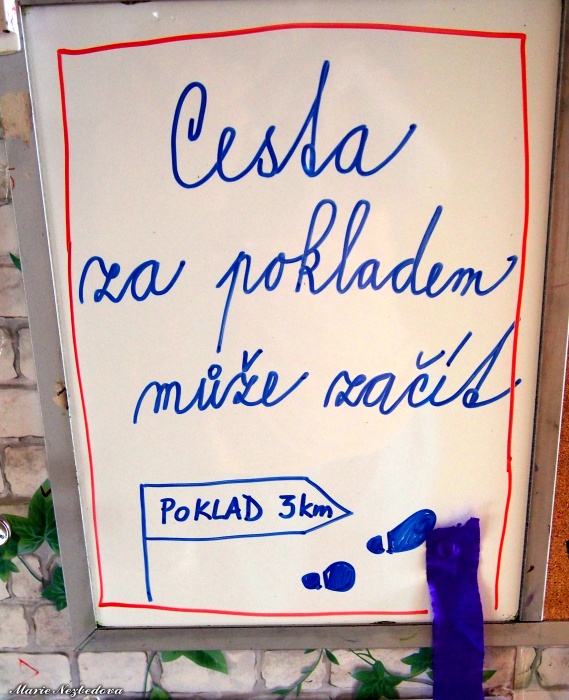 Cesta
za pokladem
může začít
POKLAD 3km
Marie Nezbedova